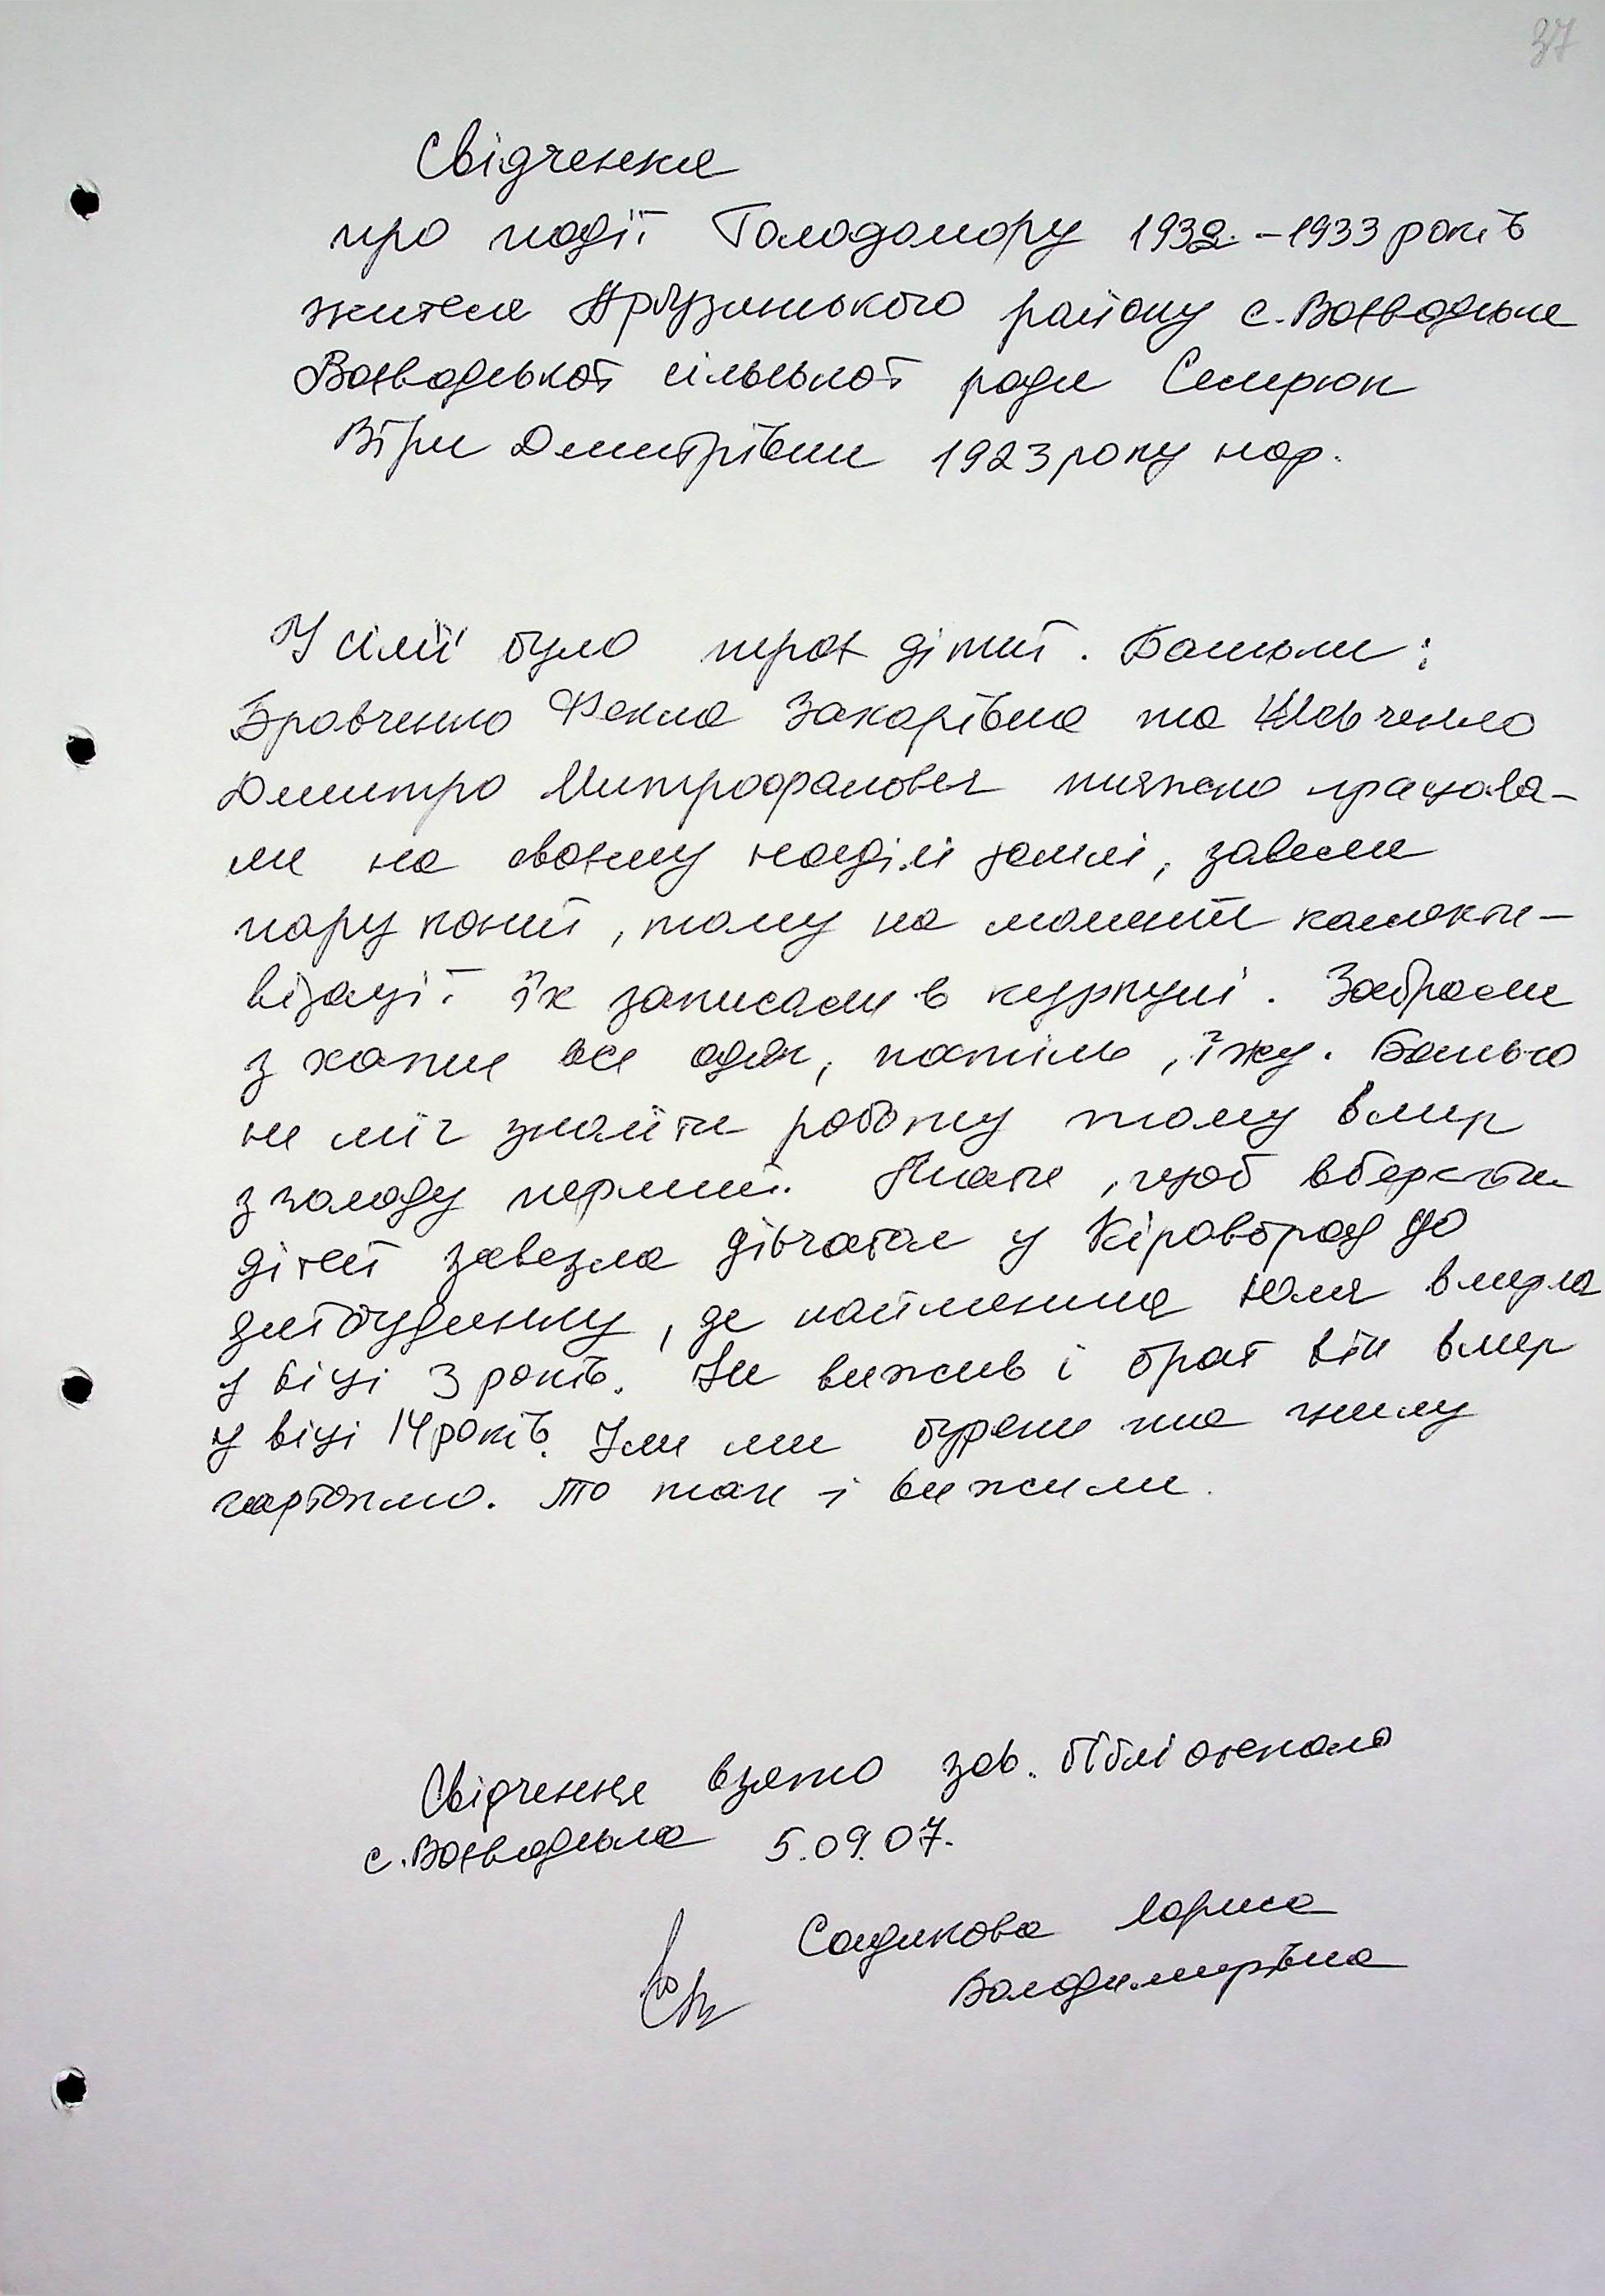 37
Свідчення
про події Голодомору 1932-1933 років
жителя Арбузинського району с. Воєводське
Воєводської сільської ради Семерюк
Віри Дмитрівни 1923 року нар.
У сімї було трок дітей. Батьки:
Бровченко Фекла Захарівна та Шевченко
Дмитро Митрофанович тяжко працюва-
ли на своєму наділі землі, завели
пару коней, тому на момент колекти-
візації їх записали в куркулі. Забрали
з хати все одяг, постіль, їжу. Батько
не міг знайти роботу тому вмер
з голоду перший. Мати, щоб вберегти
дітей завезла дівчаток у Кіровоград до
дитбудинку, де найменша Юля вмерла
у віці 3 років. Не вижив і брат він вмер
у віці 14 років. Їли ми буряки та гнилу
картоплю. То так і вижили.
Свідчення взято зав. бібліотекою
с. Воєводська 5.09.07.
Садикова Лариса
Володимирівна